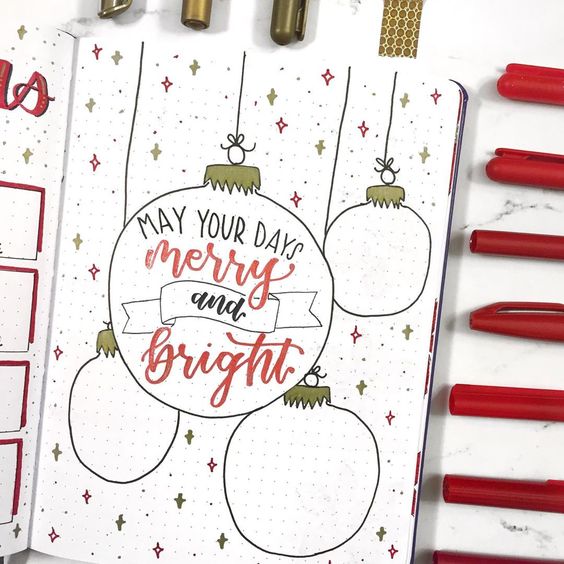 MAY YOUR DAYS
merry
and
bright